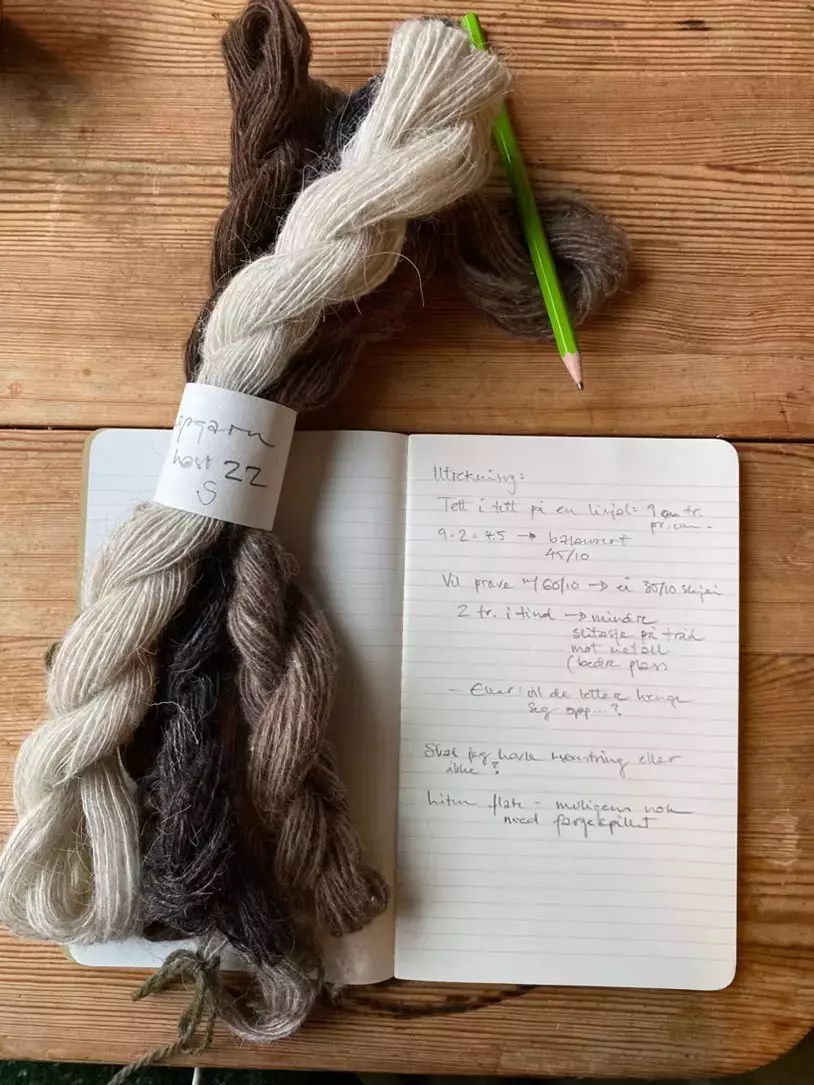 høst 22
S
Utrekning:
Tett i tett på en linjal = 9 tr.
pr. cm.
9:2=4.5 → balansert
45/10
Vil prøve m/60/10 → ei 30/10 skjei
2 tr. i tind → mindre
slitasje på tråd
mot metall
(bedre plass
- Eller: vil de lettere henge
seg opp...?
Skal jeg ha mønstring eller
ikke?
Liten flate - muligens nok
med fargespillet